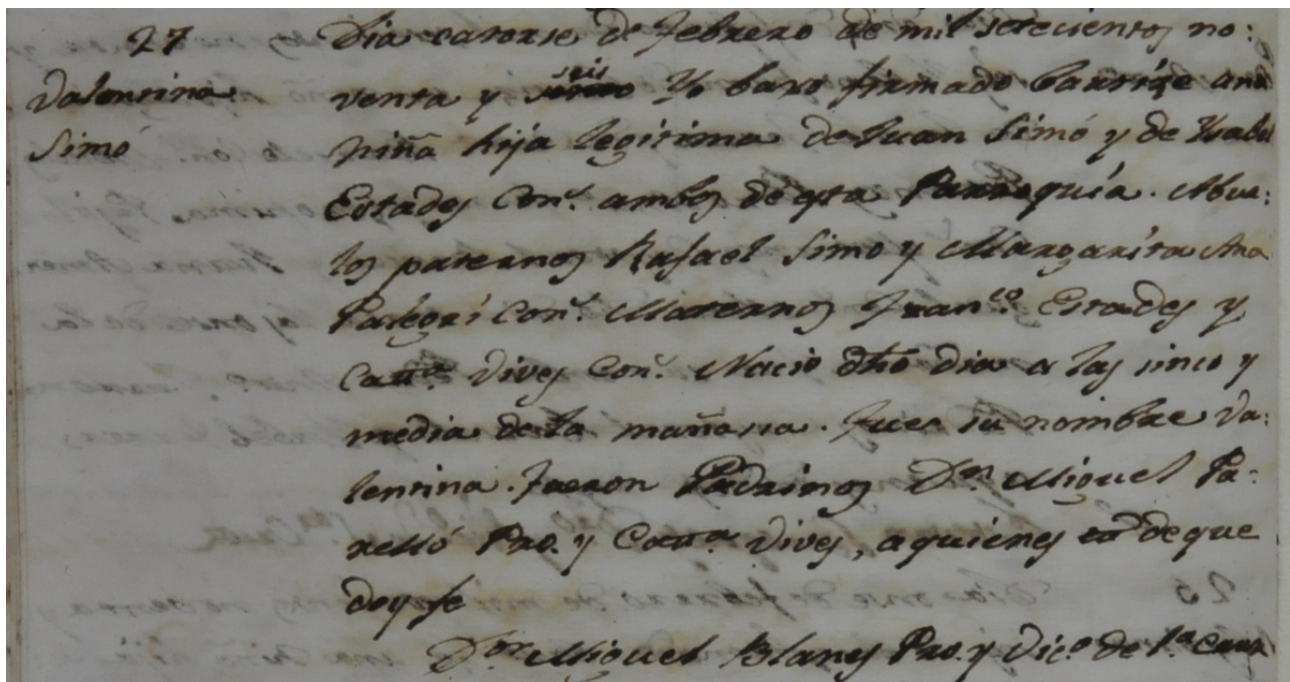 27
Valentina
Simó
Dia catorse de Febrero de mil setecientos no:
venta y seis Yo baxo firmado bautize una
niña hija legitima de Juan Simó y de Ysabel
Estades Con.s ambos de esta Parroquia. Abue:
los paternos Rafael Simo y Margarita Ana
Con.s Maternos Fran.co Estades y
Catt.a Vives Con.s Nacio dho dia a las sinco y
media de la mañana. Fue su nombre Va:
lentina. Fueron Padrinos D.n Miguel Pa:
relló Pro. y Catt.a Vives, a quienes de que
doy fe
D.or Miguel Blanes Pro. y Vic.o de S.ta Cruz